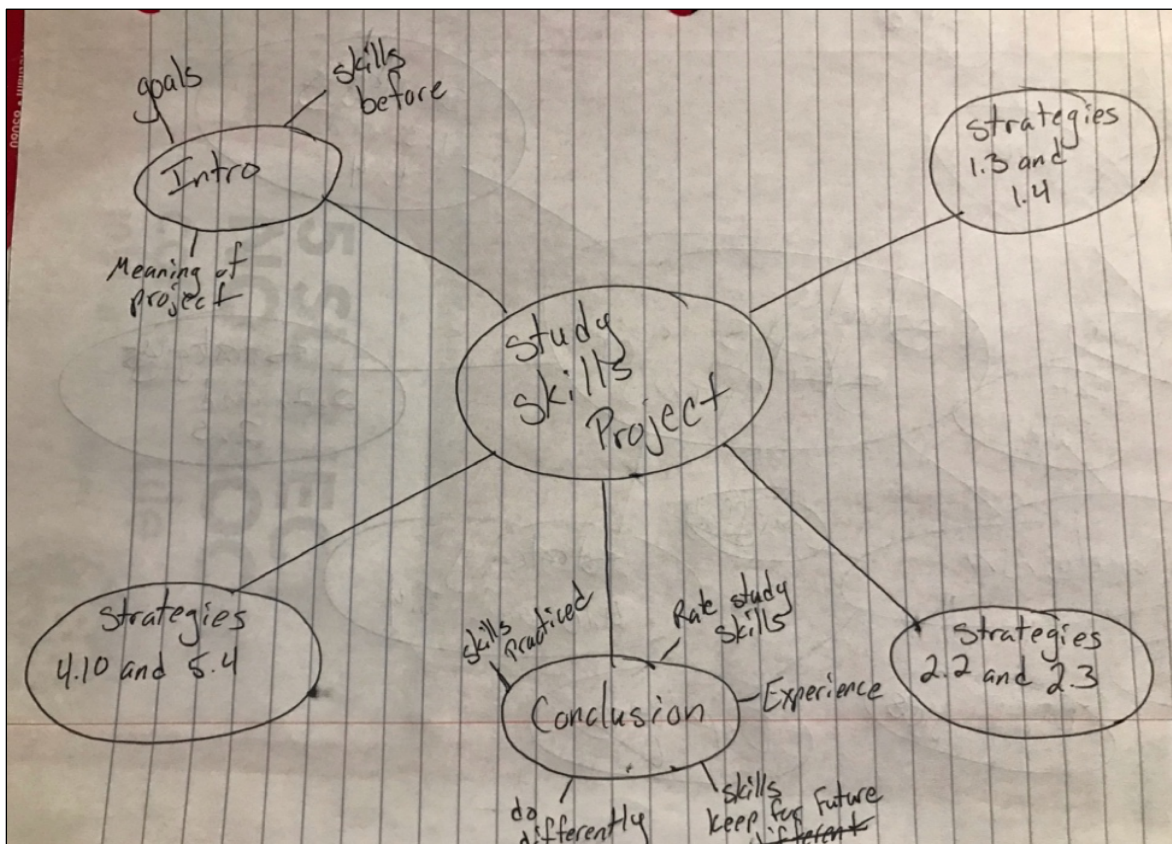 goals
skills
before
Intro
Meaning of
project
strategies
1.3 and
1.4
study
skills
Project
strategies
4.10 and 5.4
skills
practiced
Rate study
skills
Conclusion
Experience
do
differently
skills
keep for Future
strategies
2.2 and 2.3